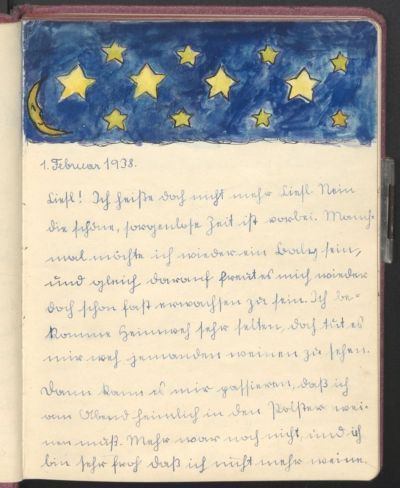 1. Februar 1938.
Liesl! Ich heiße doch nicht mehr Liesl. Nein
die schöne, sorgenlose Zeit ist vorbei. Manch-
mal möchte ich wieder ein Baby sein,
und gleich darauf freut es mich wieder
doch schon fast erwachsen zu sein. Ich be-
komme Heimweh sehr selten, doch tut es
mir weh jemanden weinen zu sehen.
Dann kann es mir passieren, daß ich
am Abend heimlich in den Polster wei-
nen muß. Mehr war noch nicht, und ich
bin sehr froh daß ich nicht mehr weine.